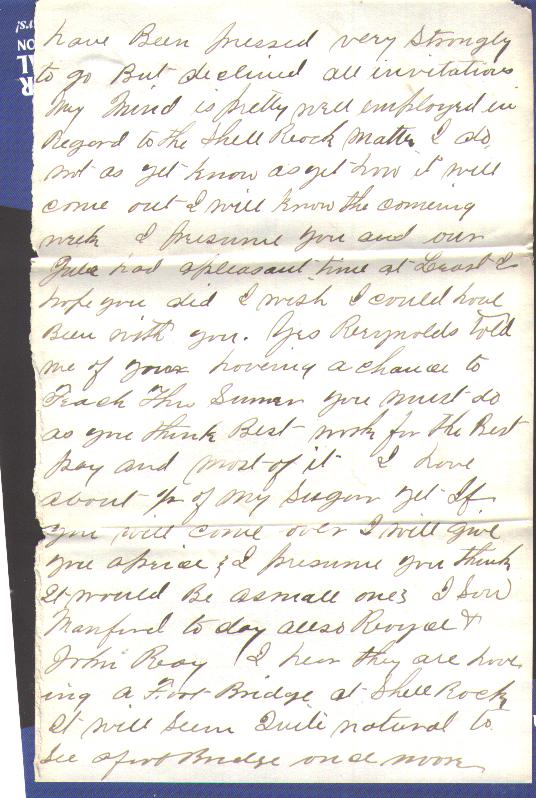 have Been pressed very Strongly
to go But declined all invitations
My Mind is pretty well employed in
Regard to the Shell Rock Matter I do
not as yet know as yet how it will
come out I will know the coming
week I presume you and our
had a pleasant time at Least I
hope you did I wish I could have
Been with you. Yes Reynolds told
me of your haveing a chance to
Teach This Sumer you must do
as you think Best work for the Best
pay and most of it I have
about ½ of my Sugar yet If
you will come over I will give
you a peice & I presume you think
It would Be a small one I Saw
Manford to day allso Royal &
John Ray I hear they are have
ing a Foot Bridge at Shell Rock
It will Seem Quite natural to
See a foot Bridge once more